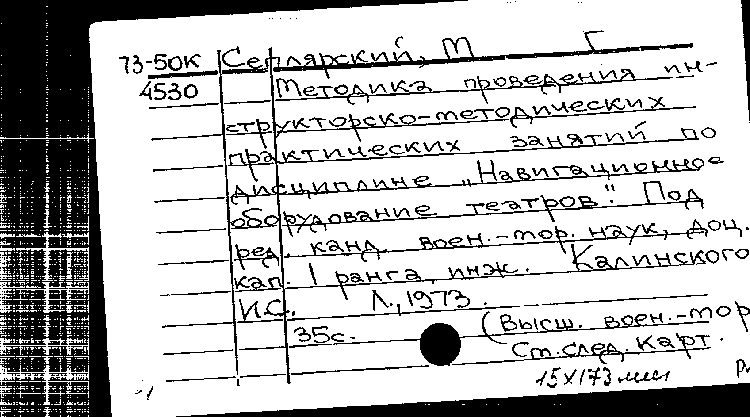 73-50К Сеплярский, М Г
4530 Методика проведения ин-
структорско-методических
практических занятий по
дисциплине „Навигационное
оборудование театров". Под
ред. канд. воен.-мор. наук, доц.
кап. 1 ранга, инж. Калинского
И.С. Л., 1973.
35с. (Высш. воен.-мор
См.след. карт.